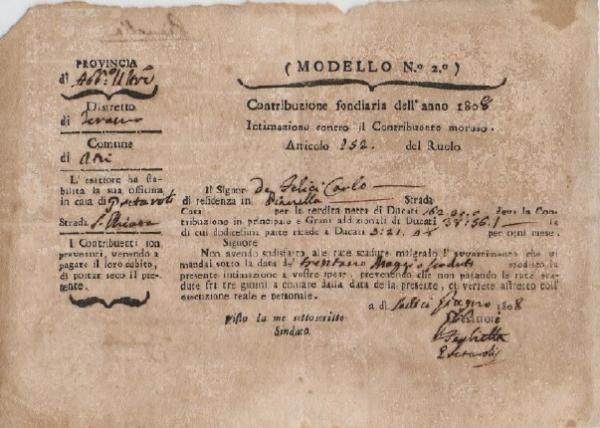 PROVINCIA
di
Distretto
di Teramo
Comune
di Atri
L'esattore ha sta-
bilita la sua officina
in casa di
Strada S. Chiara
I Contribuenti son
prevenuti, venendo a
pagare il loro debito,
di portar seco il pre-
sente.
( MODELLO N.º 2.º )
Contribuzione fondiaria dell' anno 1808
Intimazione contro il Contribuente moroso.
Articolo 252. del Ruolo
Il Signor De Felici Carlo
di residenza in Strada
Casa per la rendita netta di Ducati per la Con-
tribuzione in principale e Grani addizionali di Ducati la
di cui dodicesima parte ricade a Ducati per ogni mese.
Signore
Non avendo sodisfatto alle rate scadute malgrado l'avvertimento che vi
mandai sotto la data de' trentuno Maggio la
presente intimazione a vostre spese, prevenendo che non pagando le rate sca-
dute fra tre giorni a contare dalla data della presente, ci verrete astretto coll'
esecuzione reale e personale.
a di Giugno 1808
Visto da me sottoscritto
Sindaco.